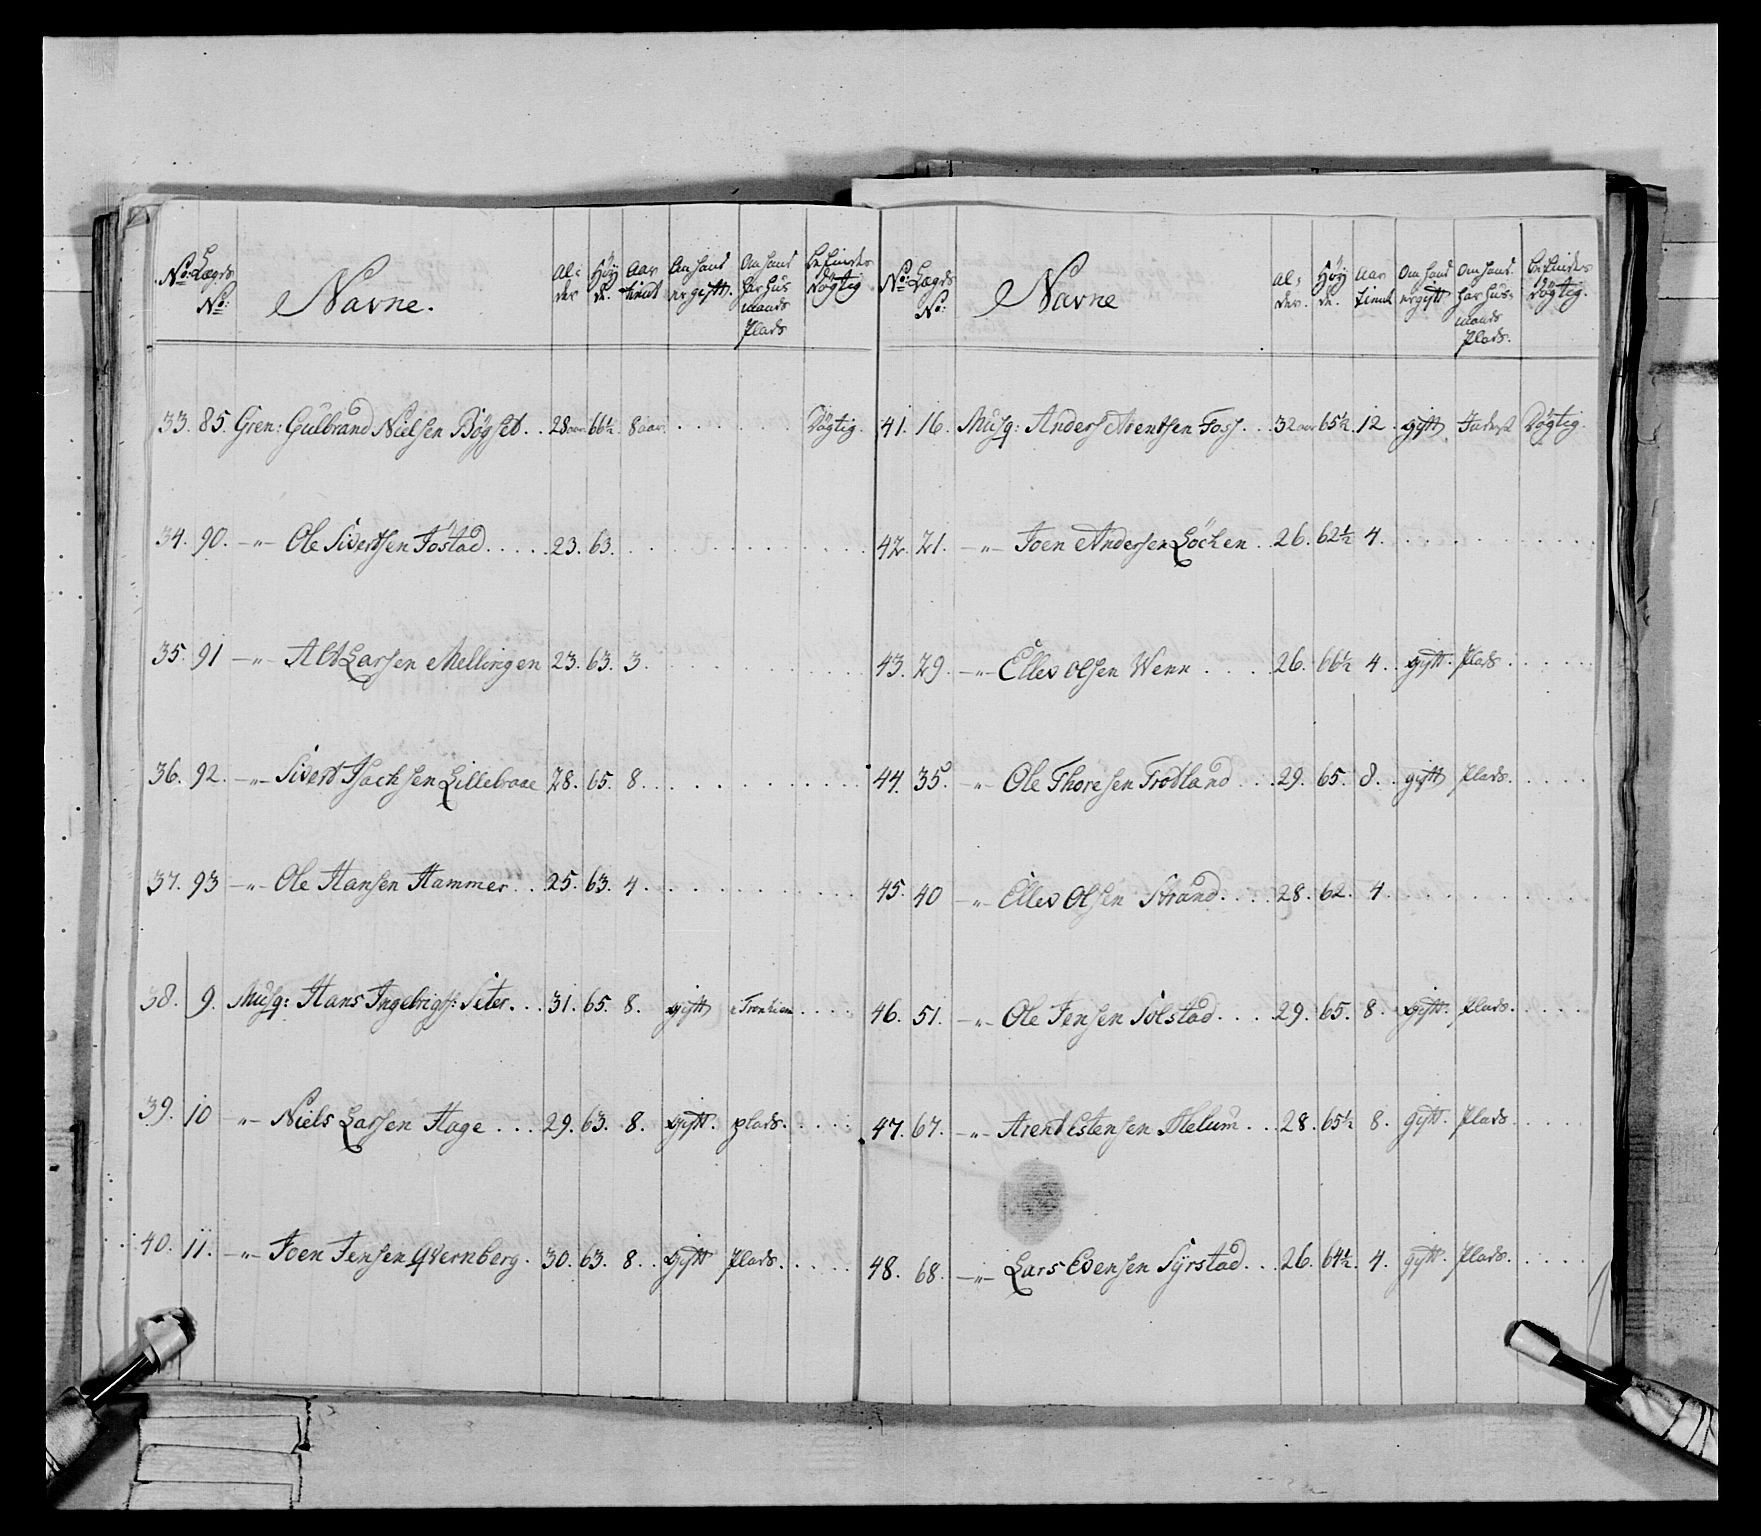 No: Lægds No: Navne. Al= der Høy de. Aar tient Om hand er gift. Om hand har hus mands Plads Befindes Dögtig
33. 85. Gren: Gulbrand Nielsen Bögset . . 28 aar 66½ 8 aar . . . . . . Dögtig.
34. 90. —"— Ole Sivertsen Föstad . . . . . 23. 63. . . . . . . . . .
35. 91 —"— Alt Larsen Mellingen 23. 63. 3. . . . . . . . .
36. 92. —"— Sivert Isachsen Lillebraae 28. 65. 8. . . . . . . . . .
37. 93 —"— Ole Hansen Hammer . . 25. 63. 4. . . . . . . . . .
38. 9. Musq: Hans Ingebrigts: Seter . . . 31. 65. 8. gift i Tronhiem . . . .
39. 10 —"— Niels Larsen Hage . . . 29. 63. 8. gift. plads. . . . .
40. 11. —"— Joen Jensen Qvernberg . 30. 63. 8. . gift Plads. . . . .
No: Lægds No: Navne Al= der. Høy de. Aar tient Om hand er gift Om hand har hus= mands Plads. Befindes Dögtig.
41. 16. Musq: Anders Arentsen Foss . . 32 aar 65½ 12. gift Inderst Dögtig.
42. 21. —"— Joen Andersen Löchen . . 26. 62½ 4. . . . . . . . .
43. 29. —"— Ellev Olsen Wenn . . . . 26. 66½ 4. . gift. Plads . . . . .
44. 35. —"— Ole Thoresen Trotland . . . 29. 65. 8. . gift Plads. . . . .
45. 40 —"— Ellev Olsen Strand. . . . 28. 62. 4. . . . . . . . .
46. 51. —"— Ole Jensen Solstad . . . 29. 65. 8. gift. Plads. . . . .
47. 67. —"— Arent Estensen Melum . . . 28. 65½ 8. gift. Plads. . . . .
48. 68. —"— Lars Evensen Syrstad . . . 26. 64½. 4. gift. Plads. . . . .